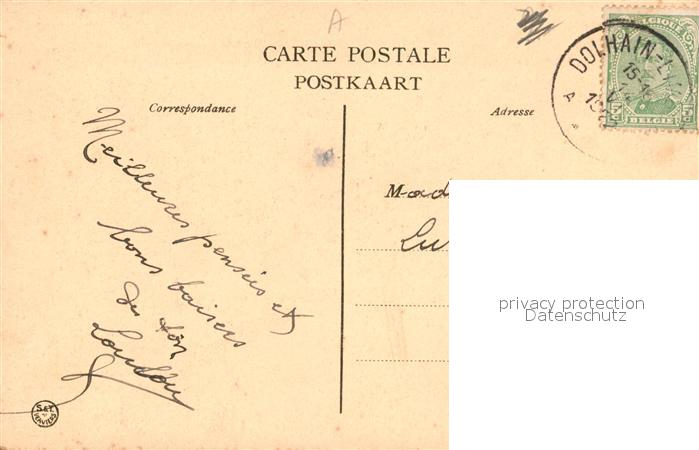 A
CARTE POSTALE
POSTKAART
Correspondance
Adresse
BELGIQUE
5c 5c
BELGIË
DOLHAIN-L
15-
A
Meilleures pensées et
bons baisers
de ton
Mad
Lu
privacy protection
Datenschutz
S.&T.
VERVIERS